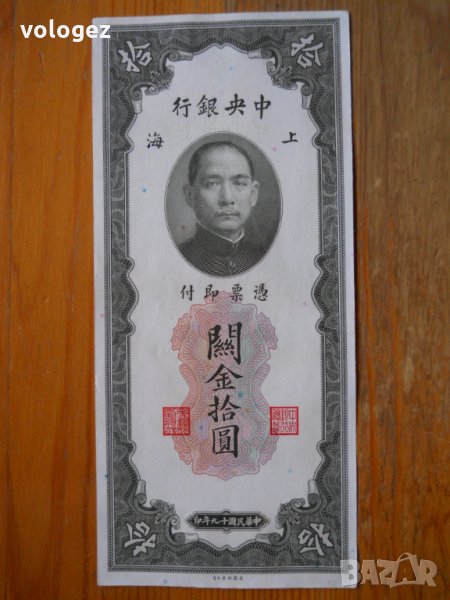 vologez
拾 拾
中央銀行
上海
憑票即付
關金拾圓
中華民國十九年印
拾 拾
BAZAR.bg